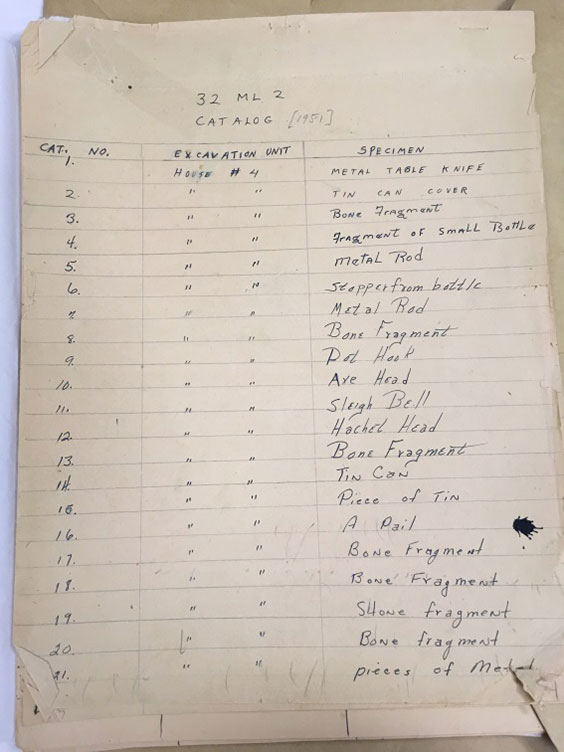 32 ML 2
CATALOG [1951]
CAT. NO. EXCAVATION UNIT SPECIMEN
1. HOUSE # 4 METAL TABLE KNIFE
2. " " TIN CAN COVER
3. " " BONE Fragment
4. " " Fragment OF Small Bottle
5. " " Metal Rod
6. " " Stopper from bottle
7. " " Metal Rod
8. " " Bone Fragment
9. " " Pot Hook
10. " " Axe Head
11. " " Sleigh Bell
12. " " Hachet Head
13. " " Bone Fragment
14. " " Tin Can
15. " " Piece of Tin
16. " " A Pail
17. " " Bone Fragment
18. " " Bone Fragment
19. " " fragment
20. " " Bone fragment
21. " " pieces of Metal